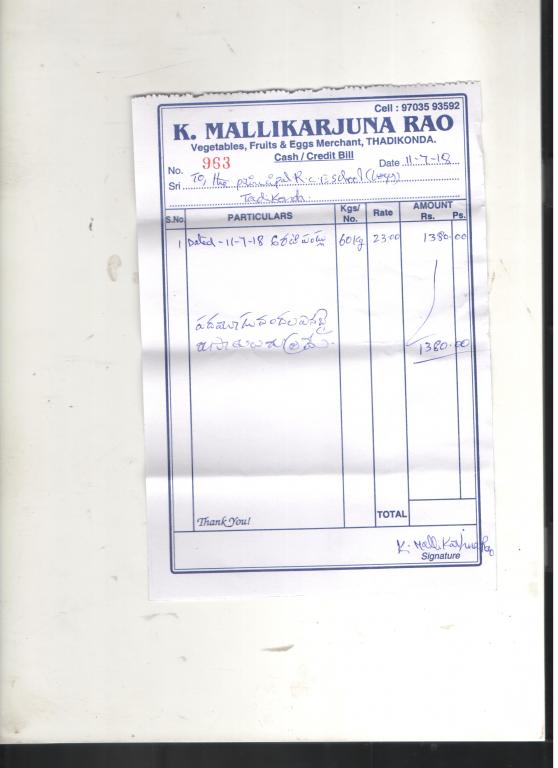 Cell : 97035 93592
K. MALLIKARJUNA RAO
Vegetables, Fruits & Eggs Merchant, THADIKONDA.
Cash / Credit Bill
No. 963 Date 11-7-18
Sri To, the principal R.C.E school (Boys)
Tadikonda.
S.No. PARTICULARS Kgs/ No. Rate AMOUNT Rs. Ps.
1 Dated - 11-7-18 అరటి పండ్లు 60kg 23.00 1380.00
పదమూడు వందల ఎనభై
రూపాయలు మాత్రమే.
1380.00
Thank You! TOTAL
K. Mallikarjuna Rao
Signature